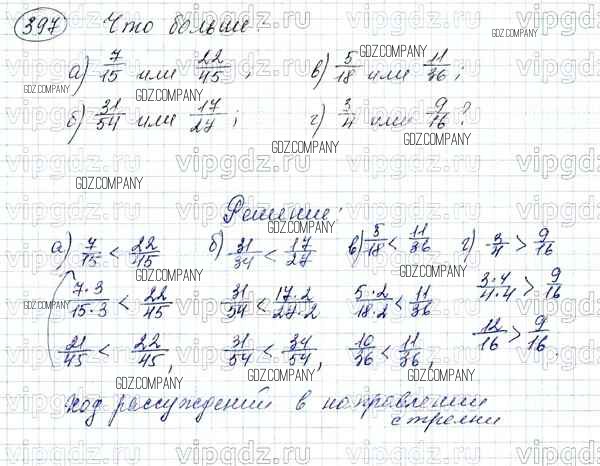 397 Что больше:
а) 7/15 или 22/45; в) 5/18 или 11/36;
б) 31/54 или 17/27; г) 3/4 или 9/16?
Решение:
а) 7/15 < 22/45 б) 31/34 < 17/27 в) 5/18 < 11/36 г) 3/4 > 9/16
7·3/15·3 < 22/45 31/54 < 17·2/27·2 5·2/18·2 < 11/36 3·4/4·4 > 9/16
21/45 < 22/45, 31/54 < 34/54, 10/36 < 11/36, 12/16 > 9/16.
ход рассуждений в направлении
стрелки